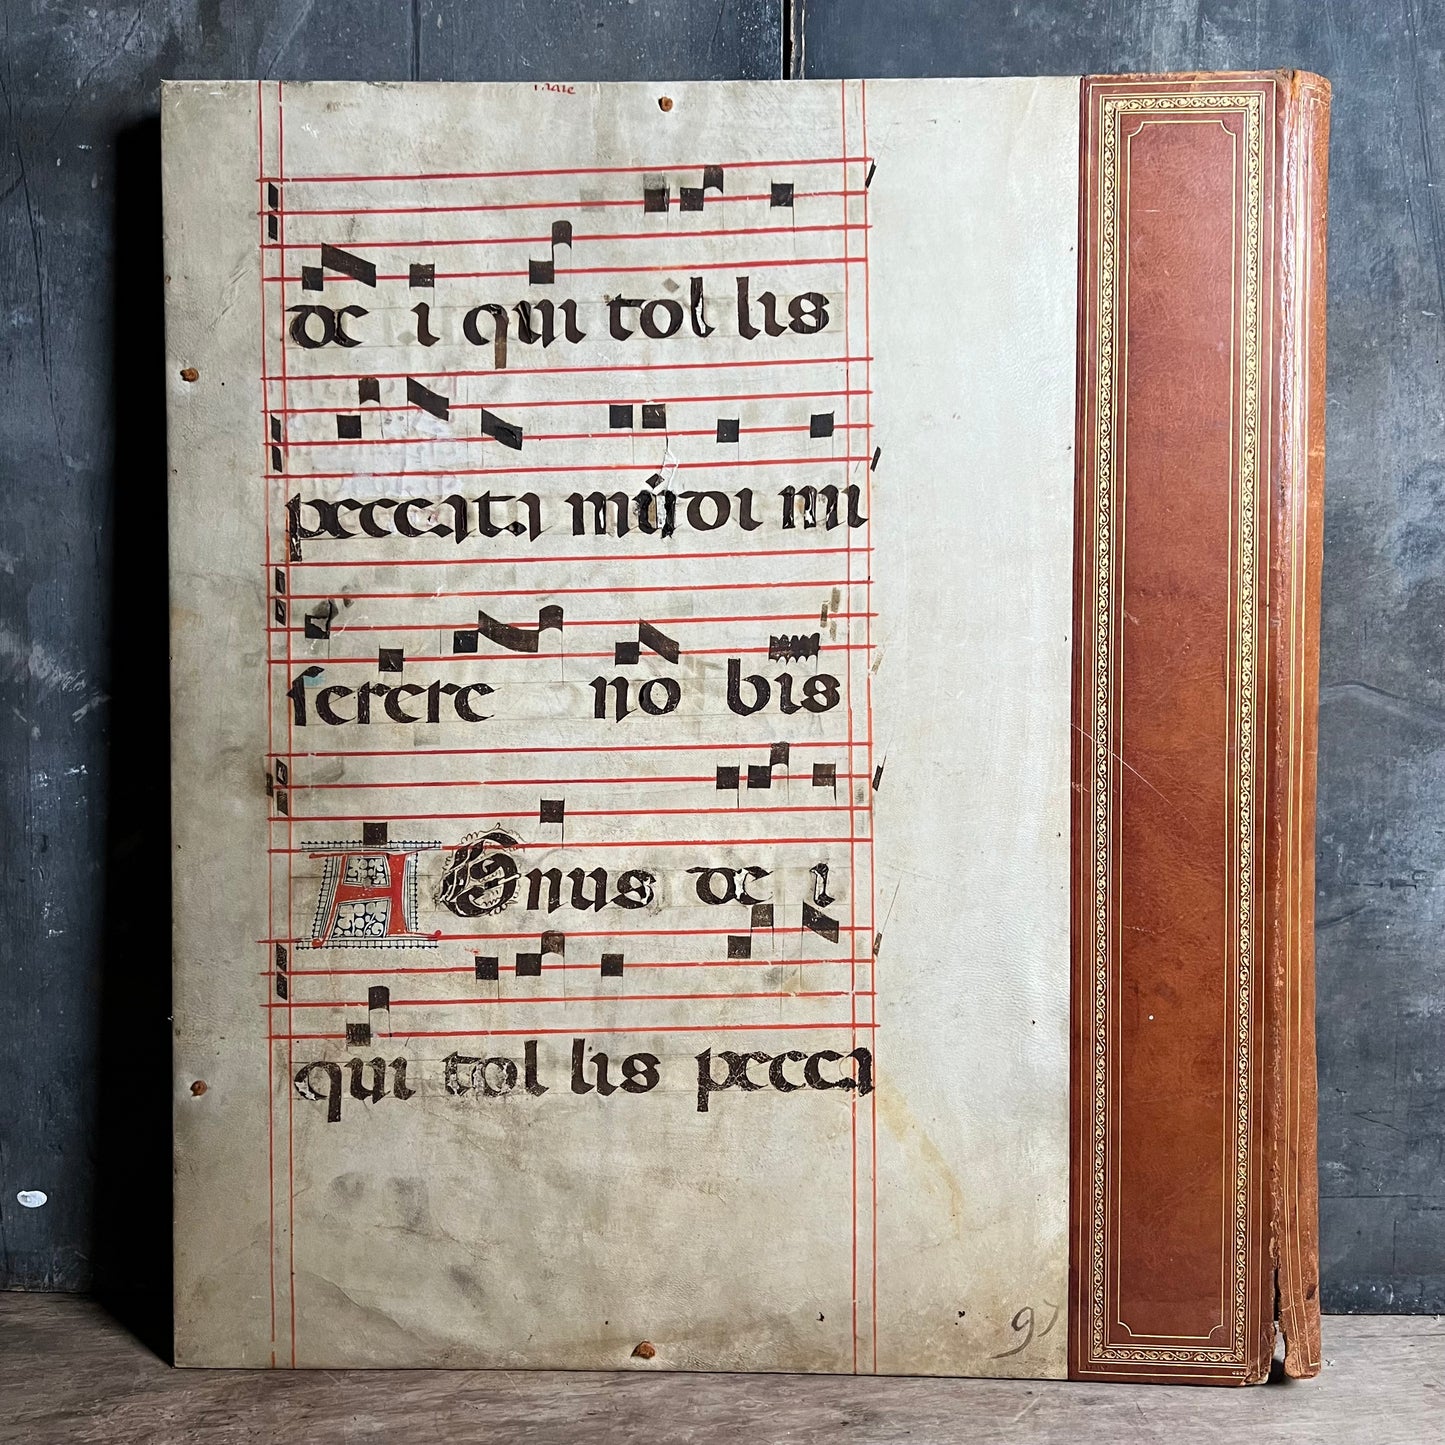 de i qui tol lis
peccata múdi mi
serere no bis
AGnus de i
qui tol lis pecca
97